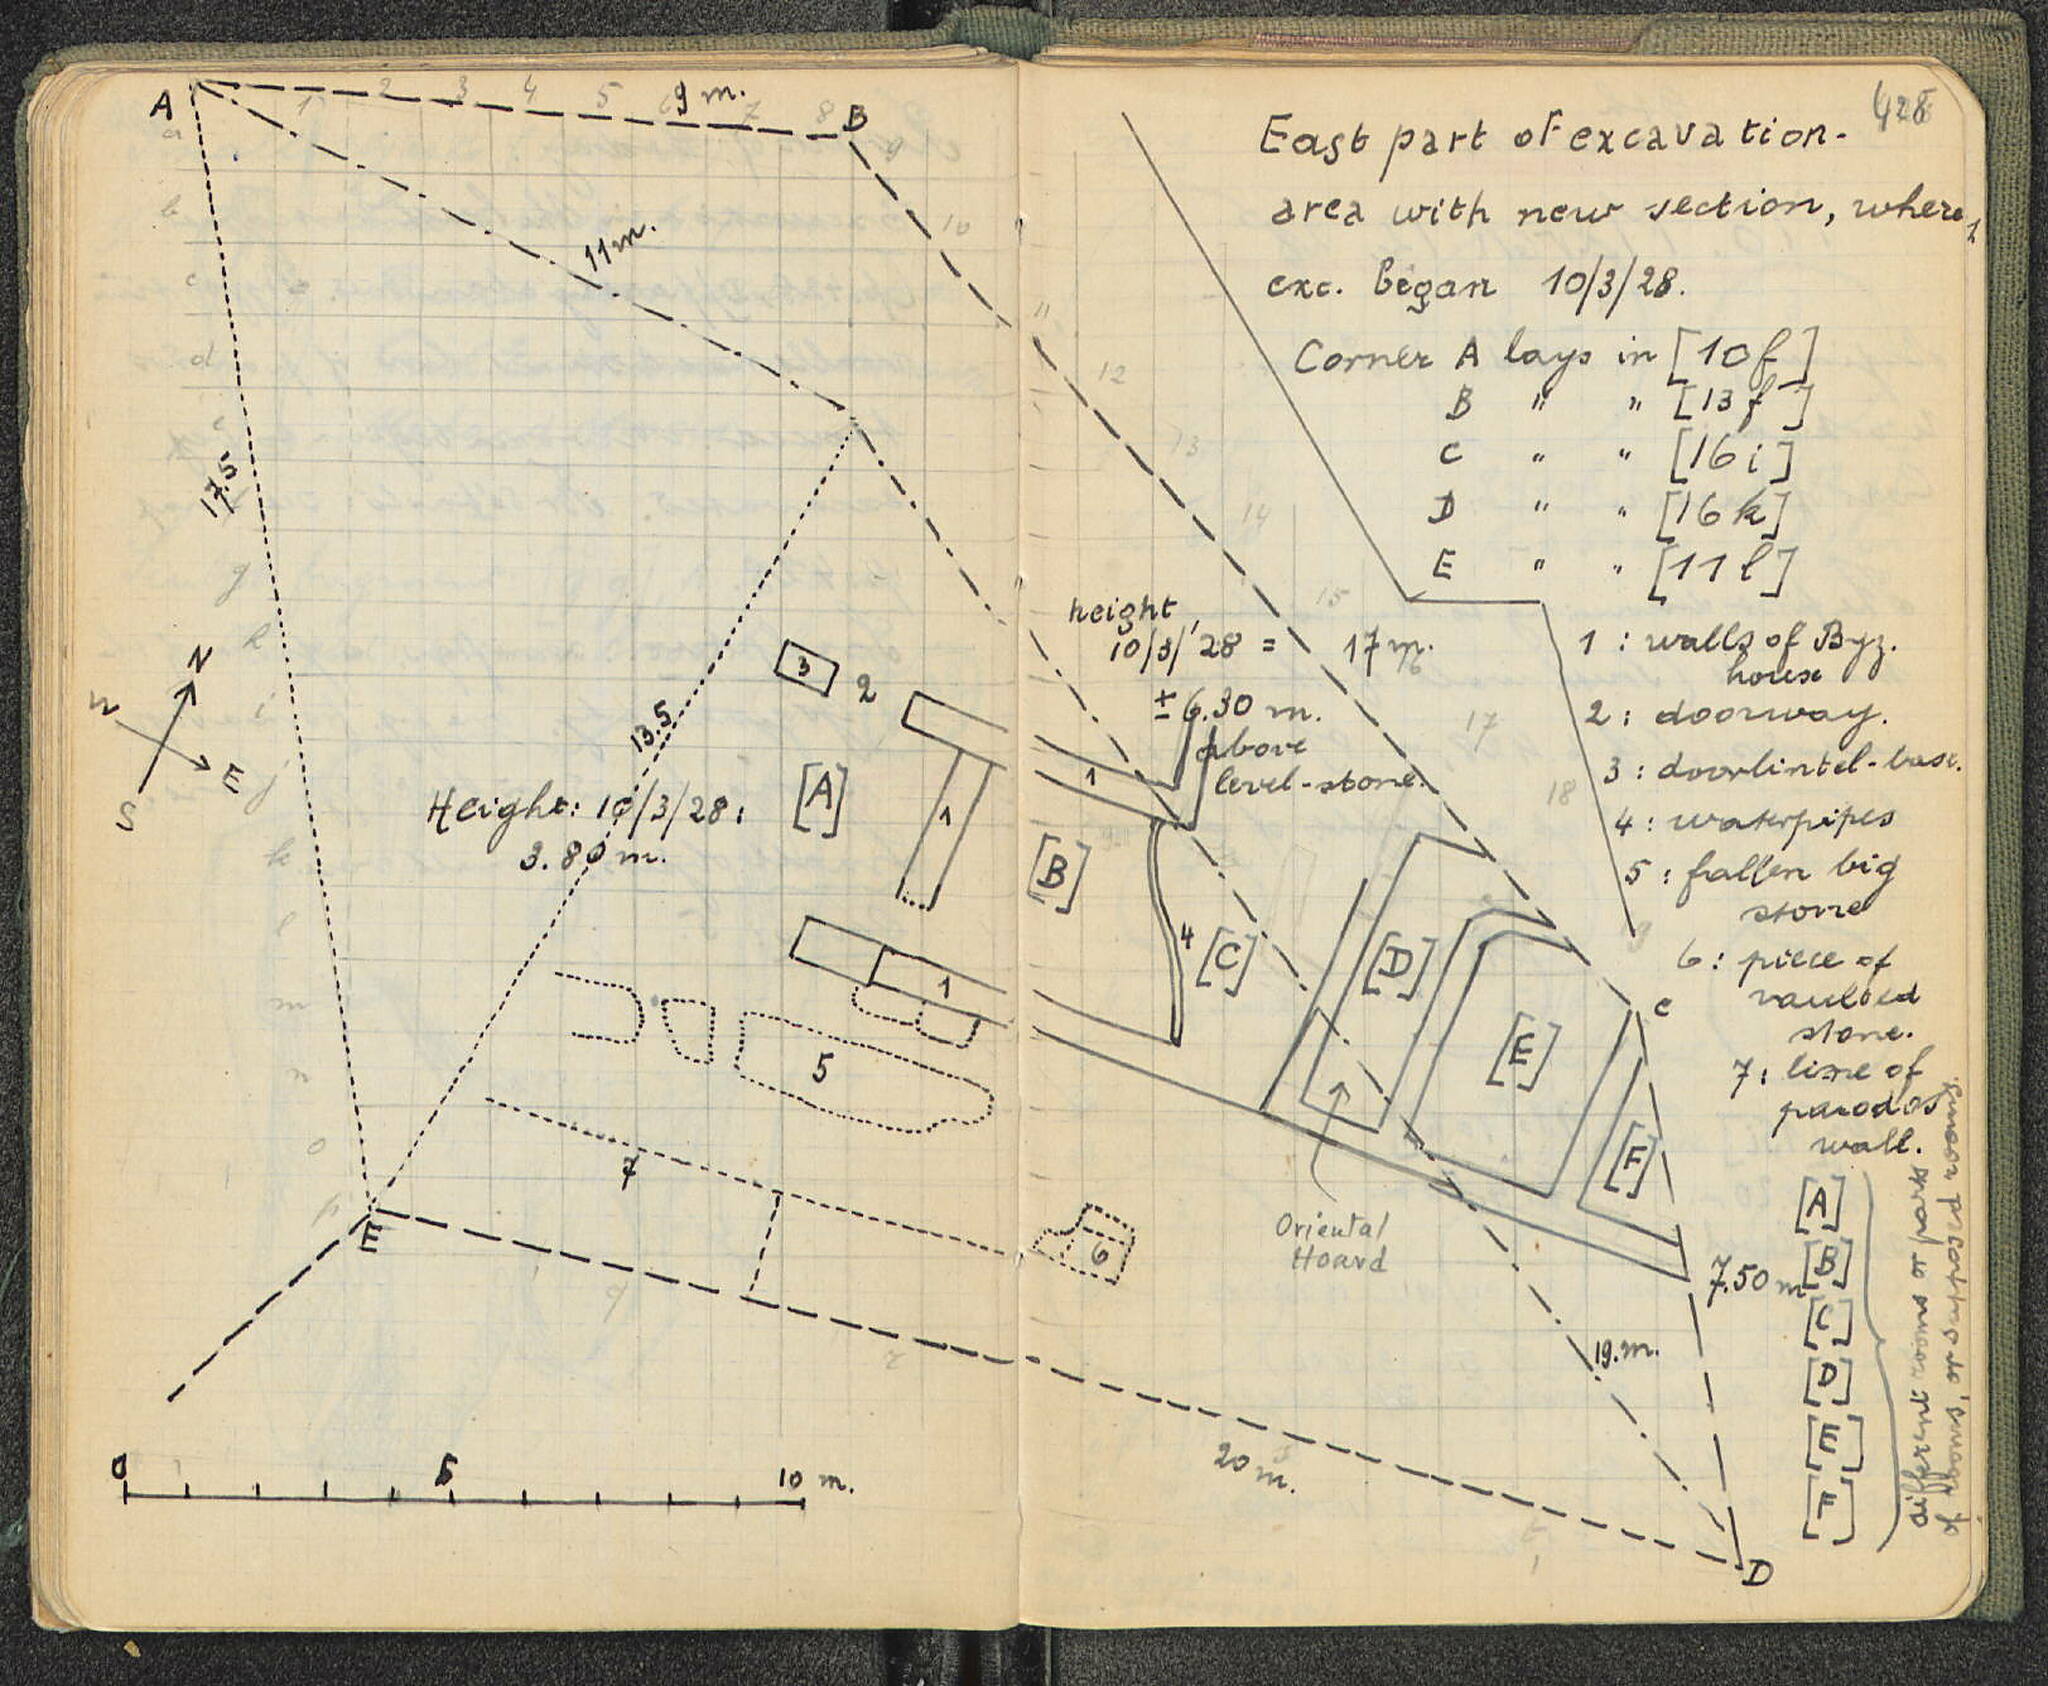 A 1 2 3 4 5 6 9 m. 7 8 B
a 9
b 10
c 11
d 12
e 13
11 m.
17.5
14
g
h
i
j
k
l
m
n
o
p
q
N
W
E
S
13.5
3
2
1
1
1
[A]
Height: 10/3/28:
3.80 m.
5
7
E
0 5 10 m.
428
East part of excavation-
area with new section, where
exc. began 10/3/28.
Corner A lays in [10f]
B " " [13f]
C " " [16i]
D " " [16k]
E " " [11l]
height,
10/3/'28 = 17 m.
± 6.30 m.
above
level-stone.
15
16
17
18
1 : walls of Byz.
house
2 : doorway.
3 : doorlintel-base.
4 : waterpipes
5 : fallen big
stone
6 : piece of
vaulted
stone.
7 : line of
parodos
wall.
[B]
4
[C]
[D]
[E]
[F]
C
6
Oriental
Hoard
7.50 m
19. m.
20 m.
D
[A]
[B]
[C]
[D]
[E]
[F]
different rooms or parts
of rooms, or supposed rooms.